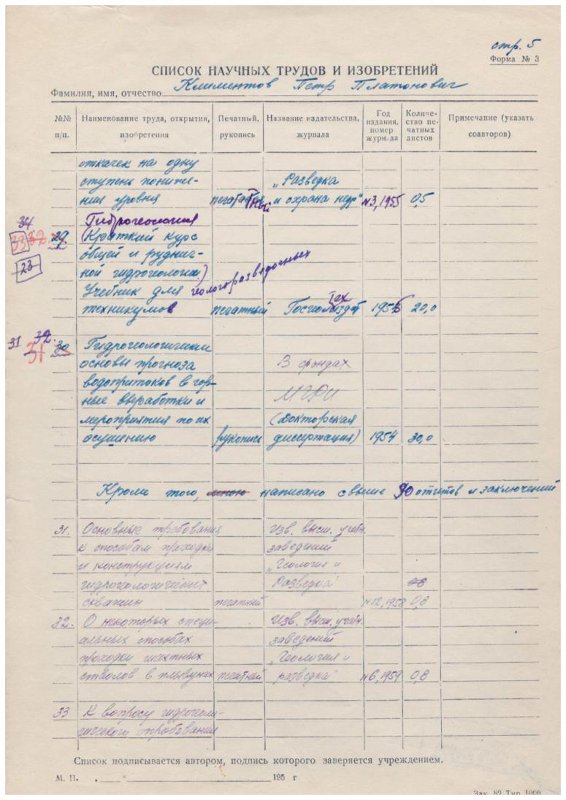 стр. 5
Форма № 3
СПИСОК НАУЧНЫХ ТРУДОВ И ИЗОБРЕТЕНИЙ
Фамилия, имя, отчество Климентов Петр Платонович
№№ п/п. Наименование труда, открытия, изобретения Печатный, рукопись Название издательства, журнала Год издания, номер журнала Количество печатных листов Примечание (указать соавторов)
откачек на одну
ступень пониже- „Разведка
ния уровня печатный и охрана недр" №3, 1955 0,5
34 Гидрогеология
33 32 29 (Краткий курс
23 общей и руднич-
ной гидрогеологии)
Учебник для геологоразведочных
техникумов печатный Госгеолтехиздат 1956 20,0
31 32 30 Гидрогеологические
31 основы прогноза В фондах
водопритоков в гор-
ные выработки и МГРИ
мероприятия по их (Докторская
осушению рукопись диссертация) 1954 30,0
Кроме того, мною написано свыше 90 отчетов и заключений
31. Основные требования Изв. высш. учебн.
к способам проходки заведений
и конструкциям „Геология и
гидрогеологических Разведка"
скважин печатный №12, 1958 0,8
32. О некоторых специ- Изв. высш. учебн.
альных способах заведений
проходки шахтных „Геология и
стволов в плывунах печатной разведка" №6, 1959 0,8
33 К вопросу гидрогеоло-
гического опробования
Список подписывается автором, подпись которого заверяется учреждением.
М. П. „ " 195 г
Зак. 89 Тир. 1000